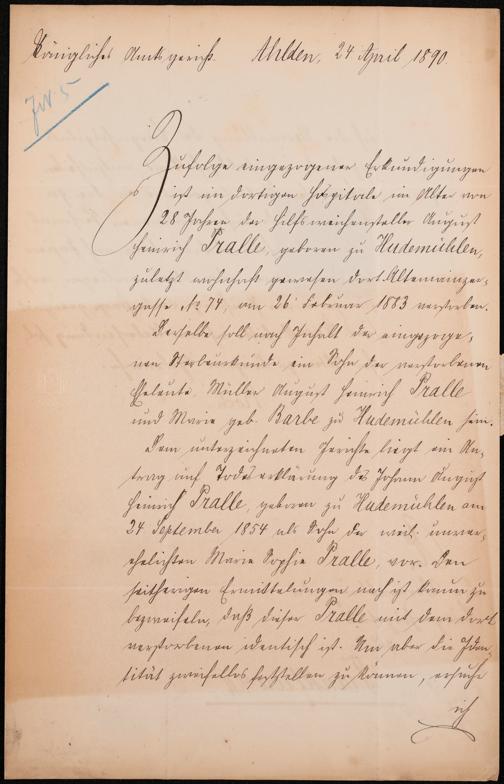 Königliches Amtsgericht. Ahlden, 24 April 1890
Zufolge eingezogener Erkundigungen
ist im dortigen Hospitale im Alter von
28 Jahren der Hilfsweichensteller August
Heinrich Pralle, geboren zu Hudemühlen,
zuletzt wohnhaft gewesen dort Altemainzer-
gasse No 74, am 26 Februar 1883 verstorben.
Derselbe soll nach Inhalt der eingezoge-
nen Sterbeurkunde ein Sohn der verstorbenen
Eheleute Müller August Heinrich Pralle
und Marie geb. Barbe zu Hudemühlen sein.
Dem unterzeichneten Gerichte liegt ein An-
trag auf Todeserklärung des Johann August
Heinrich Pralle, geboren zu Hudemühlen am
24 September 1854 als Sohn der weil. unver-
ehelichten Marie Sophie Pralle, vor. Den
seitherigen Ermittelungen nach ist kaum zu
bezweifeln, daß dieser Pralle mit dem dort
verstorbenen identisch ist. Um aber die Iden-
tität zweifellos feststellen zu können, ersuche
ich